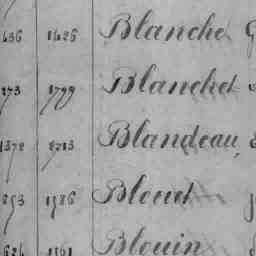 436 1426 Blanche G
273 1799 Blanchet
1372 2713 Blandeau,
253 1586 Bloud
1561 Blouin